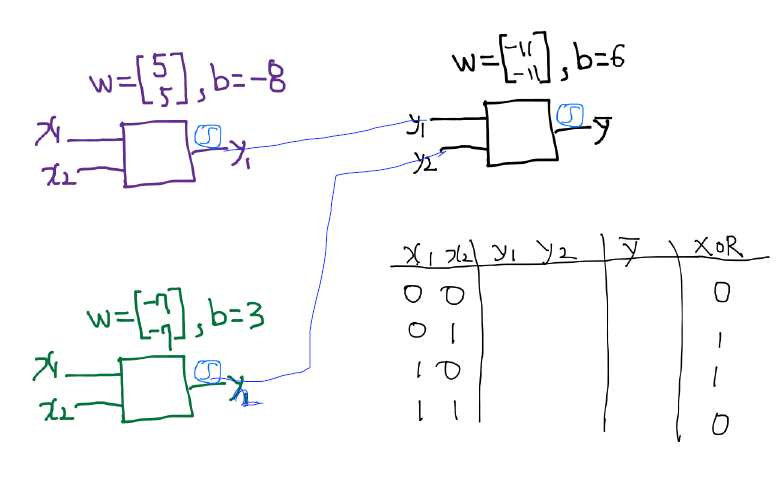 w=[5 5], b=-8
x1
x2
S
y1
w=[-11 -11], b=6
y1
y2
S
ȳ
w=[-7 -7], b=3
x1
x2
S
y2
x1 x2 y1 y2 ȳ XOR
0 0 0
0 1 1
1 0 1
1 1 0